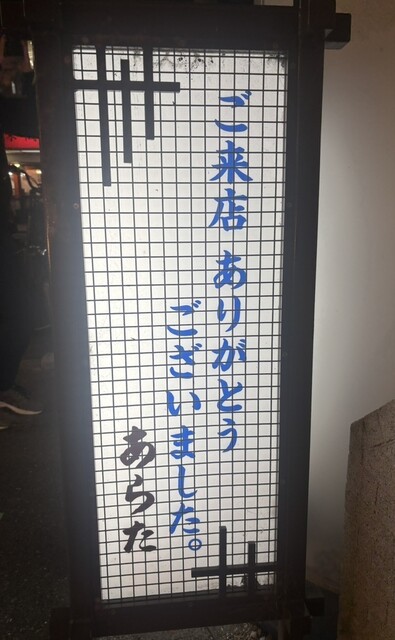 ご来店 ありがとう
ございました。
あらた